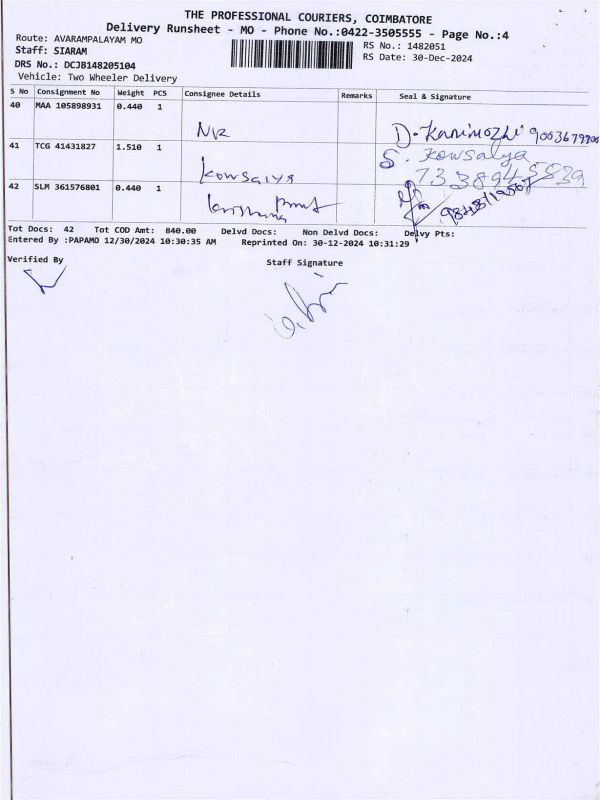 THE PROFESSIONAL COURIERS, COIMBATORE
Delivery Runsheet - MO - Phone No.:0422-3505555 - Page No.:4
Route: AVARAMPALAYAM MO
RS No.: 1482051
Staff: SIARAM
RS Date: 30-Dec-2024
DRS No.: DCJB148205104
Vehicle: Two Wheeler Delivery
S No Consignment No Weight PCS Consignee Details Remarks Seal & Signature
40 MAA 105898931 0.440 1
D. Kanimozhi
41 TCG 41431827 1.510 1
Kowsalya S. Kowsalya
42 SLM 361576801 0.440 1
Tot Docs: 42 Tot COD Amt: 840.00 Delvd Docs: Non Delvd Docs: Delvy Pts:
Entered By :PAPAMO 12/30/2024 10:30:35 AM Reprinted On: 30-12-2024 10:31:29
Verified By Staff Signature